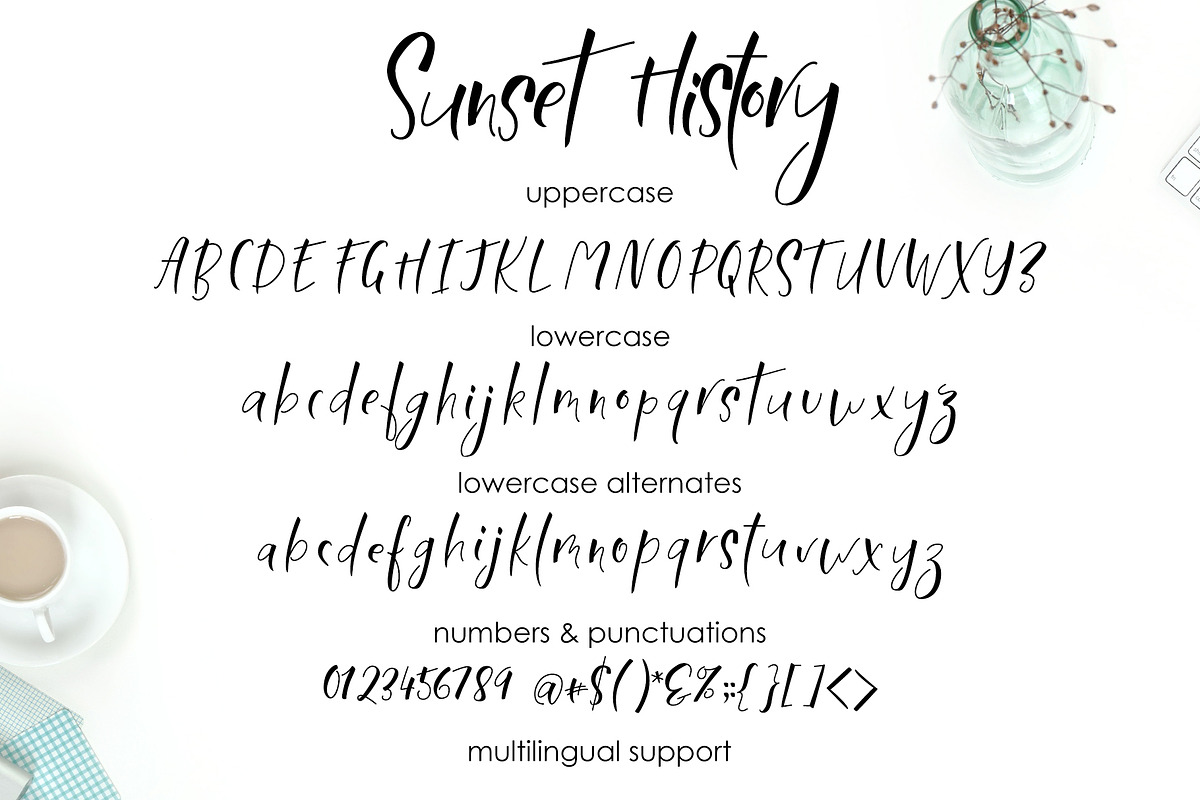 Sunset History
uppercase
ABCDEFGHIJKLMNOPQRSTUVWXYZ
lowercase
abcdefghijklmnopqrstuvwxyz
lowercase alternates
abcdefghijklmnopqrstuvwxyz
numbers & punctuations
0123456789 @#$()*&%;:{}[]<>
multilingual support